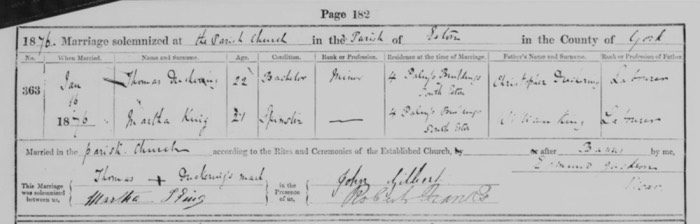 Page 182
1876. Marriage solemnized at the Parish Church in the Parish of Eston in the County of York
No. When Married. Name and Surname. Age. Condition. Rank or Profession. Residence at the time of Marriage. Father's Name and Surname. Rank or Profession of Father.
363 Jan 16 1876 Thomas 22 Bachelor Miner 4 Buildings South Eston Christopher Labourer
Martha King 21 Spinster — 4 Buildings South Eston William King Labourer
Married in the parish church according to the Rites and Ceremonies of the Established Church, by or after Banns by me,
This Marriage was solemnized between us, Thomas + mark
Martha King
in the Presence of us, John Gilbert
Robert Franks
Edmund Jackson
Vicar